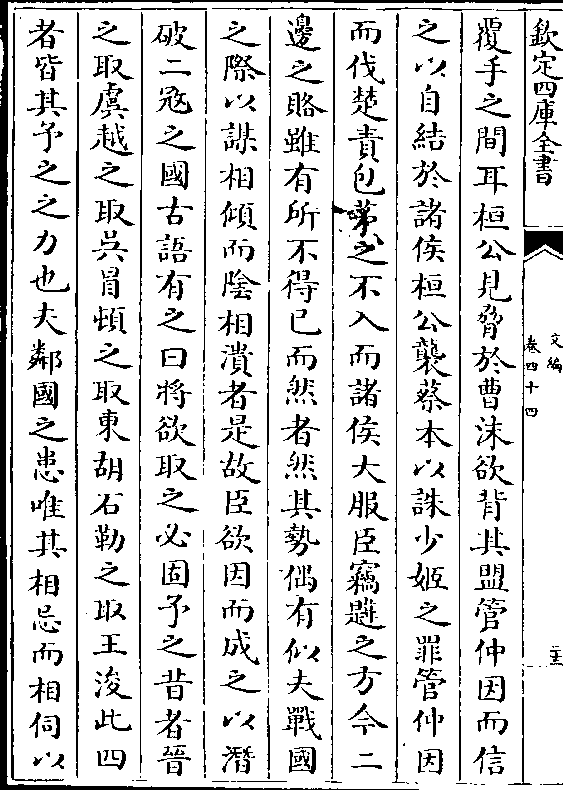 欽定四庫全書
文編
卷四十四
覆手之間耳桓公見脅於曹沫欲背其盟管仲因而信
之以自結於諸侯桓公襲蔡本以誅少姬之罪管仲因
而伐楚責包茅之不入而諸侯大服臣竊遲之方今二
邊之賂雖有所不得已而然者然其勢偶有似夫戰國
之際以謀相傾而陰相潰者是故臣欲因而成之以潛
破二冦之國古語有之曰將欲取之必固予之昔者晉
之取虞越之取吳冒頓之取東胡石勒之取王浚此四
者皆其予之之力也夫鄰國之患唯其相忌而相伺以